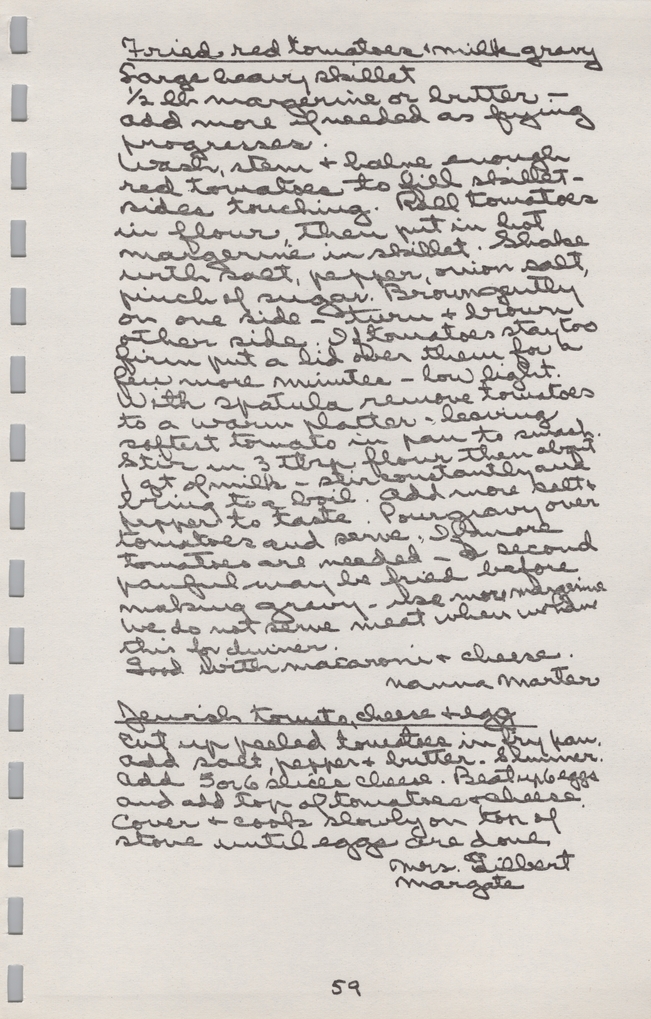 Fried red tomatoes & milk gravy
Large heavy skillet
1/2 lb margerine or butter –
add more if needed as frying
progresses.
Wash, stem + halve enough
red tomatoes to fill skillet –
sides touching. Roll tomatoes
in flour, then put in hot
margerine in skillet. Shake
with salt, pepper, onion salt,
pinch of sugar. Brown gently
on one side – turn + brown
other side. If tomatoes stay too
firm put a lid over them for a
few more minutes – low light.
With spatula remove tomatoes
to a warm platter – leaving
softest tomato in pan to smash.
Stir in 3 tbsp flour then about
1 qt of milk – stir constantly and
bring to a boil. Add more salt +
pepper to taste. Pour gravy over
tomatoes and serve. If more
tomatoes are needed – a second
panful may be fried before
making gravy – use more margerine
We do not serve meat when
this for dinner.
Good with macaroni + cheese.
Nanna Marter
Jewish tomato, cheese + egg
Cut up peeled tomatoes in fry pan.
Add salt, pepper + butter. Simmer.
Add 5 or 6 slices cheese. Beat up 6 eggs
and add top of tomatoes + cheese.
Cover + cook slowly on top of
stove until eggs are done.
Mrs. Gilbert
Margate
59